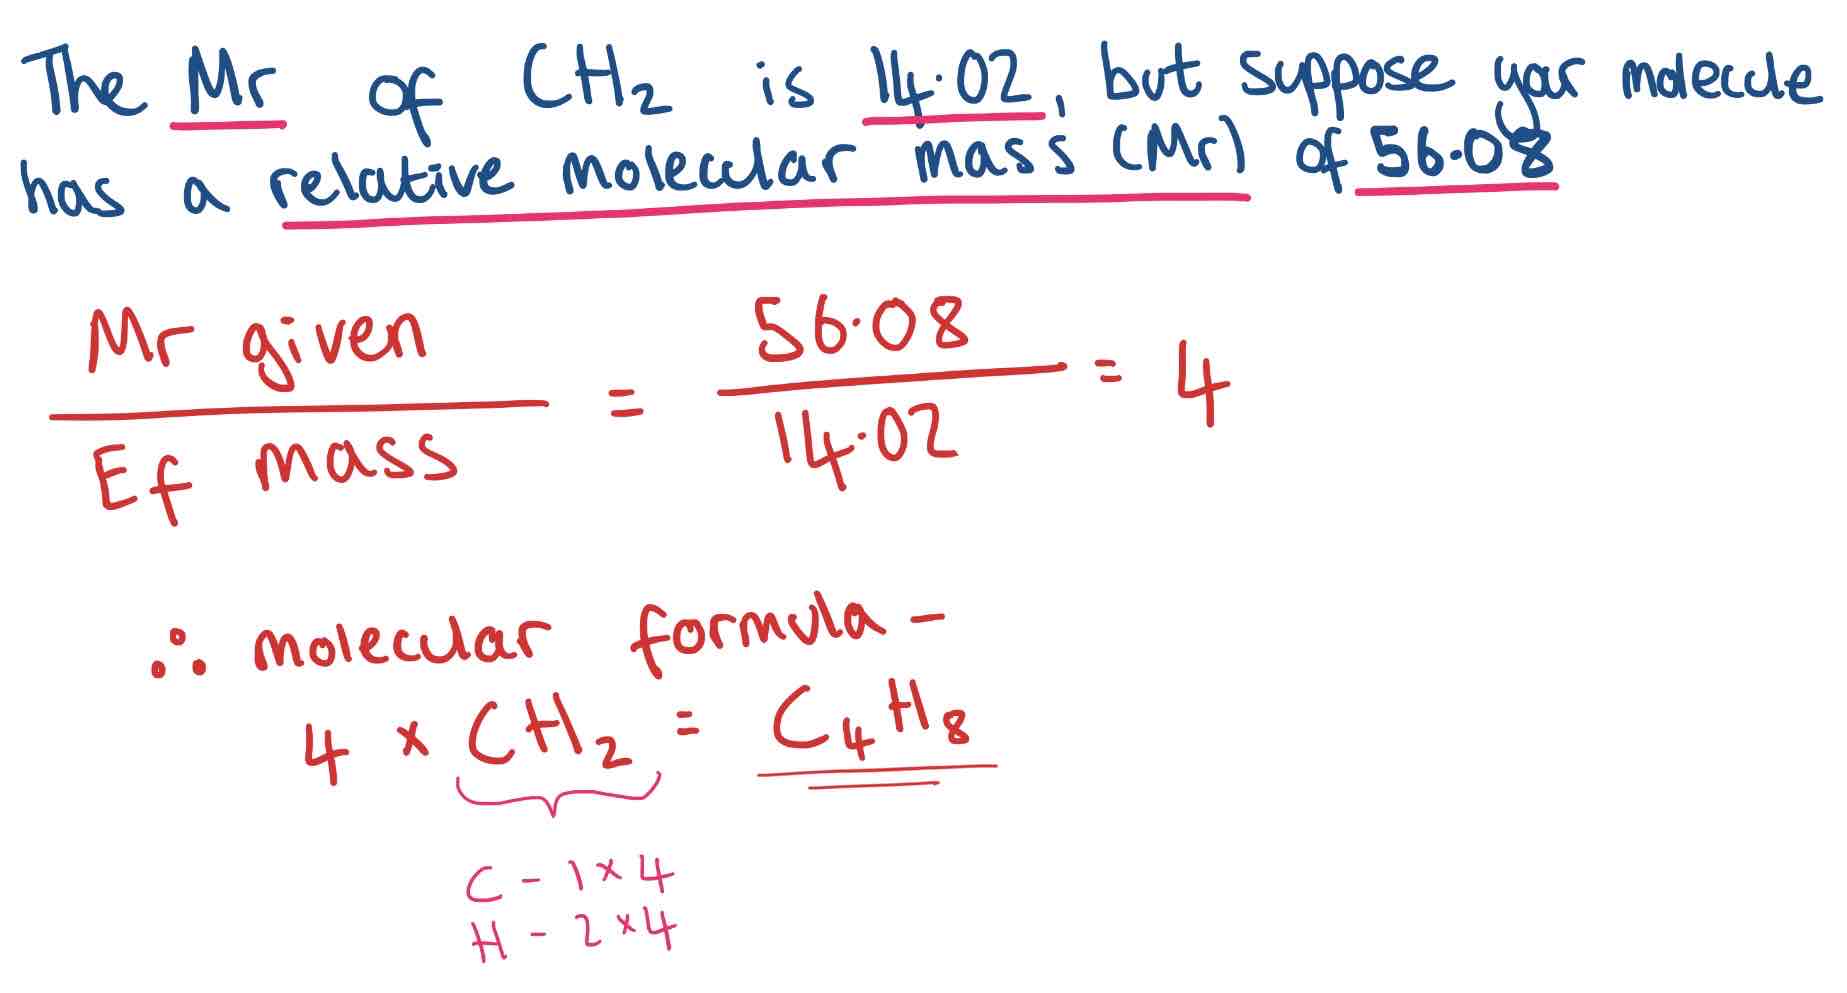 The Mr of CH₂ is 14.02, but suppose your molecule
has a relative molecular mass (Mr) of 56.08
Mr given / Ef mass = 56.08 / 14.02 = 4
∴ molecular formula –
4 × CH₂ = C₄H₈
C – 1 × 4
H – 2 × 4